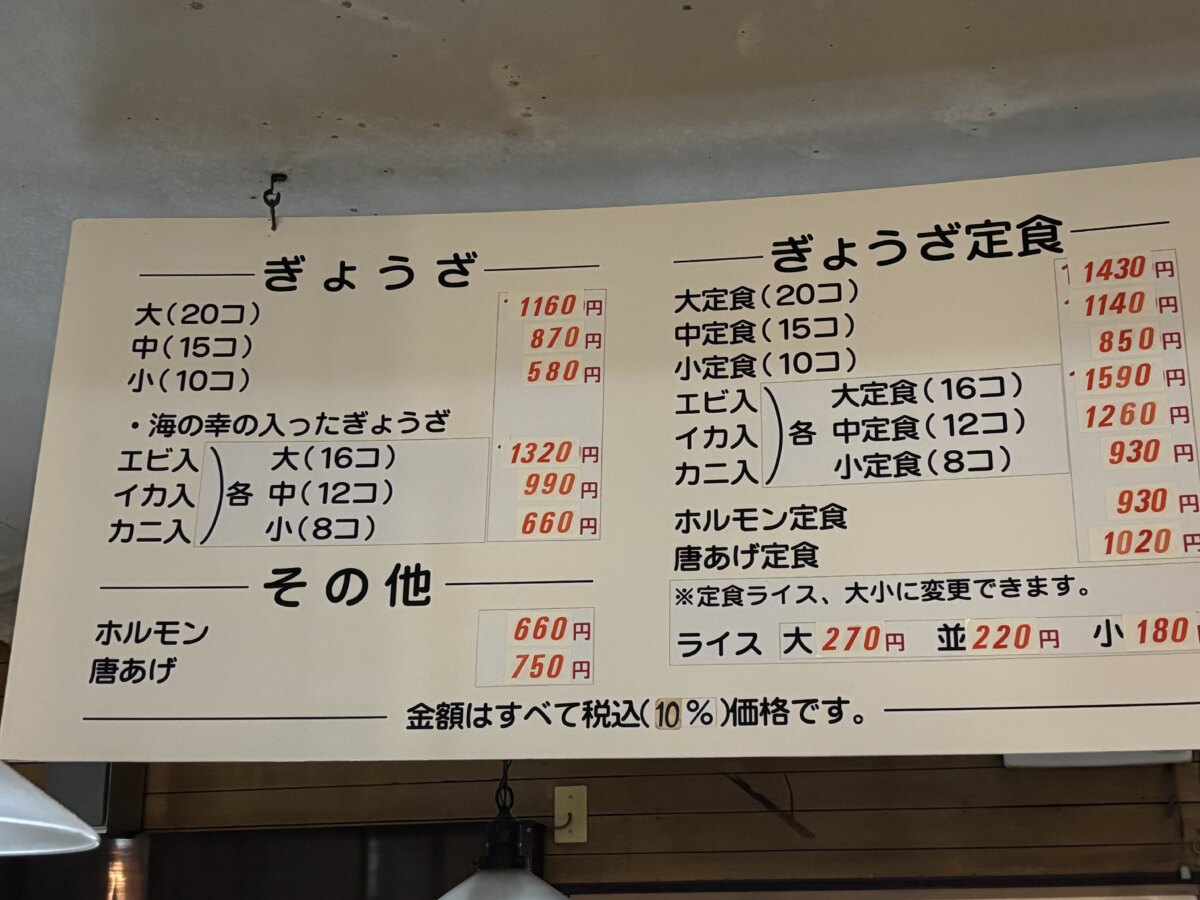 ぎょうざ
大(20コ) 1160円
中(15コ) 870円
小(10コ) 580円
・海の幸の入ったぎょうざ
エビ入 大(16コ) 1320円
イカ入 各 中(12コ) 990円
カニ入 小(8コ) 660円
その他
ホルモン 660円
唐あげ 750円
ぎょうざ定食
大定食(20コ) 1430円
中定食(15コ) 1140円
小定食(10コ) 850円
エビ入 大定食(16コ) 1590円
イカ入 各 中定食(12コ) 1260円
カニ入 小定食(8コ) 930円
ホルモン定食 930円
唐あげ定食 1020円
※定食ライス、大小に変更できます。
ライス 大270円 並220円 小180円
金額はすべて税込(10%)価格です。